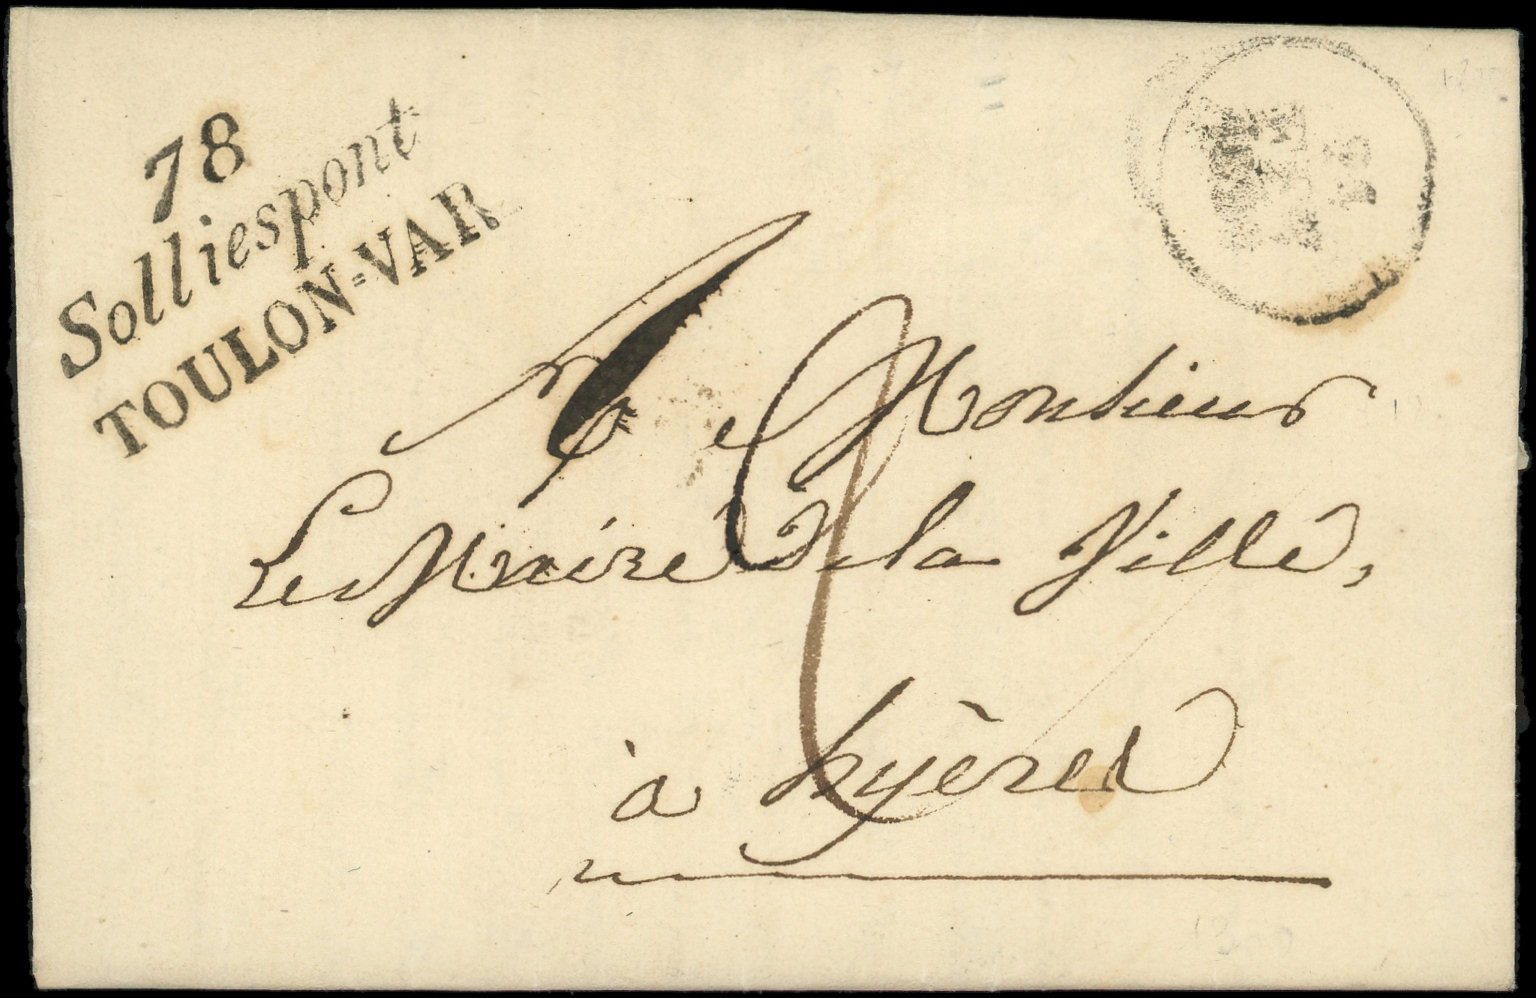 78
Solliespont
TOULON-VAR
A Monsieur
Le Maire de la Ville,
à hyères